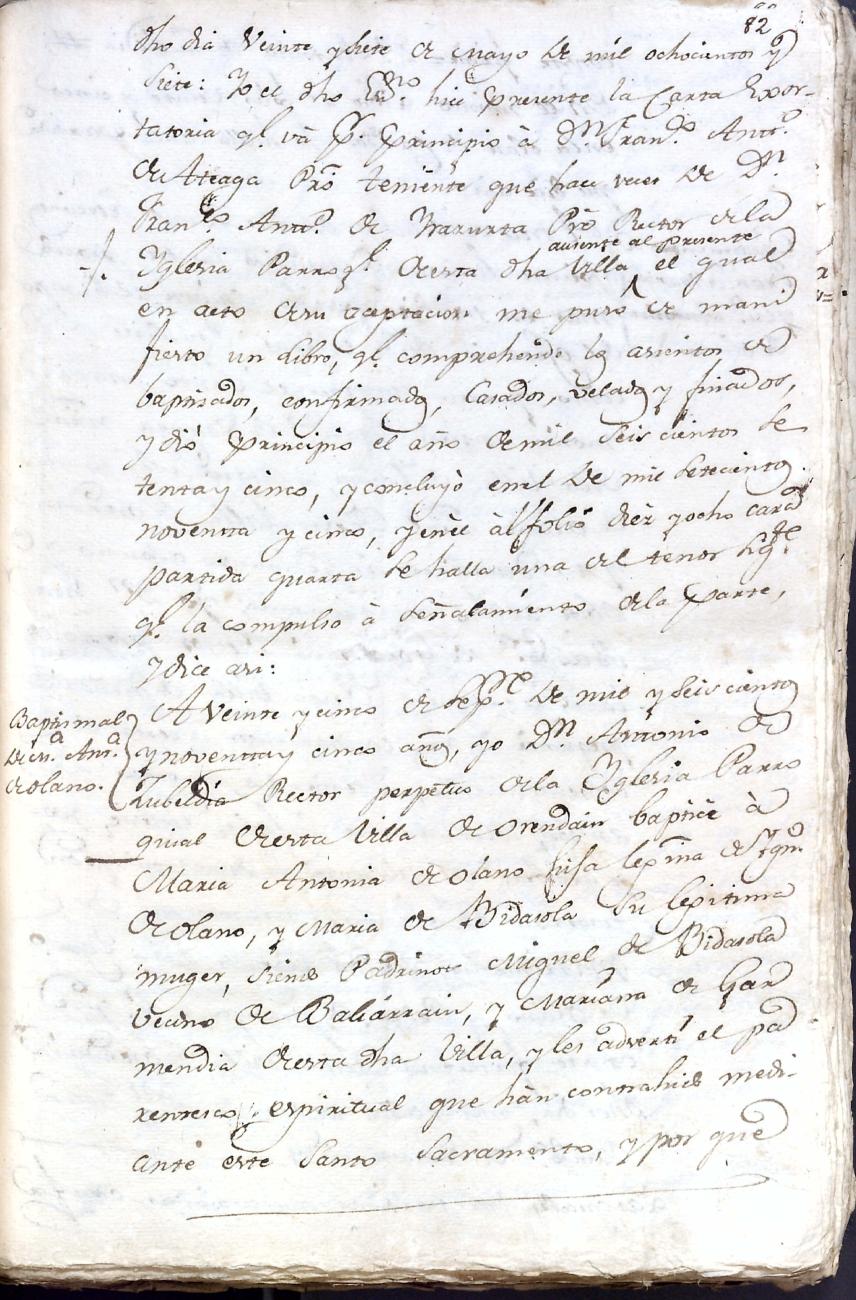 82
dho dia Veinte y siete de Mayo de mil ochocientos y
siete: Yo el dho Essno hice presente la Carta Exor-
tatoria qe. và pr. principio à Dn. Franco. Anto.
de Ateaga Pro teniente que hace veces de Dn
Franco. Anto. de Pro Rector de la
ausente al presente
Yglesia Parroql. de esta dha Villa el qual
en acto de su aceptacion me puso de mani
fiesto un Libro, qe. comprehende los asientos de
baptisados, confirmados, Casados, velados y finados,
y dió principio el año de mil seis cientos se
tenta y cinco, y concluyò en el de mil setecientos
noventta y cinco, y en èl àl folio diez y ocho
partida quarta se halla una del tenor sigte
qe. la compulso à señalamiento de la parte,
y dice asi:
Baptismal
de Ma. Anta.
de olano.
A Veinte y cinco de Sepre. de mil y seis cientos
y noventta y cinco años, yo Dn Antonio de
Zubeldia Rector perpetuo de la Yglesia Parro
quial de esta Villa de Orendain baptice à
Maria Antonia de olano hija lexma de
de olano, y Maria de Bidasola su lexitima
muger, siendo Padrinos Miguel de Bidasola
Vecino de Baliarrain, y Mariana de Gar
mendia de esta dha Villa, y les adverti el pa
rentesco espiritual que hàn contrahido medi-
ante este Santo Sacramento, y por que